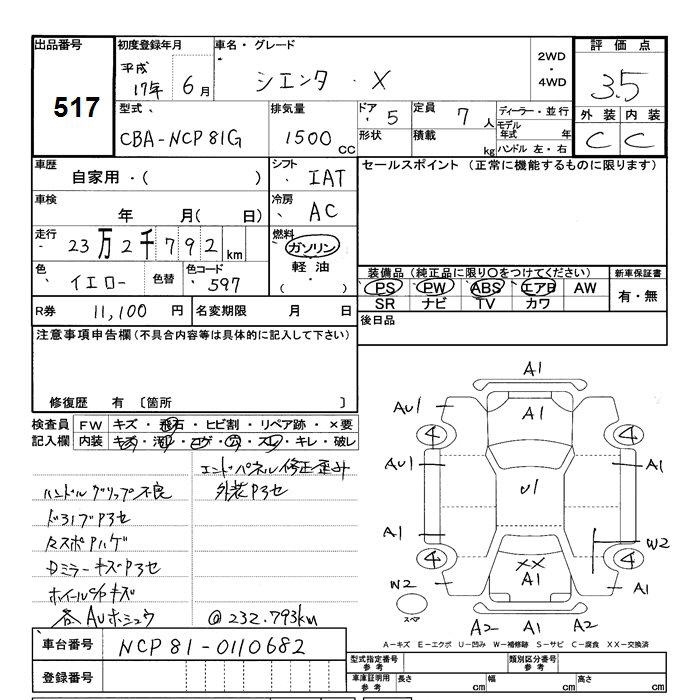 出品番号
517
初度登録年月
平成
17年 6月
車名・グレード
シエンタ ・ X
2WD
・
4WD
評価点
3.5
外装 内装
C C
型式
CBA-NCP81G
排気量
1500 CC
ドア
5
形状
定員
7人
積載
kg
ディーラー・並行
モデル年式 年
ハンドル 左・右
車歴
自家用・( )
シフト
IAT
車検
年 月( 日)
冷房
AC
走行
23万2千792km
燃料
ガソリン
軽油
( )
色
イエロー
色替
色コード
597
R券 11,100 円
名変期限 月 日
セールスポイント (正常に機能するものに限ります)
装備品 (純正品に限り○をつけてください)
PS PW ABS エアB AW
SR ナビ TV カワ
新車保証書
有・無
後日品
注意事項申告欄(不具合内容等は具体的に記入して下さい)
修復歴 有 〔箇所 〕
検査員
記入欄
FW キズ・飛石・ヒビ割・リペア跡・×要
内装 キズ・汚れ・コゲ・穴・スレ・キレ・破レ
エンドパネル修正歪み
ハンドルグリップ不良
外装P3セ
ドライブP3セ
Dミラーキズ P3セ
ホイールC/Pキズ
各AUホシュウ
@232.793km
A1
A1
AU1
4
4
AU1
A1
U1
A1
W2
4
4
××
A1
W2
A1
A2
A1
A2
スペア
A-キズ E-エクボ U-凹み W-補修跡 S-サビ C-腐食 XX-交換済
車台番号 NCP81-0110682
登録番号
型式指定番号
参考
類別区分番号
参考
車庫証明用
参考
長さ cm
幅 cm
高さ cm